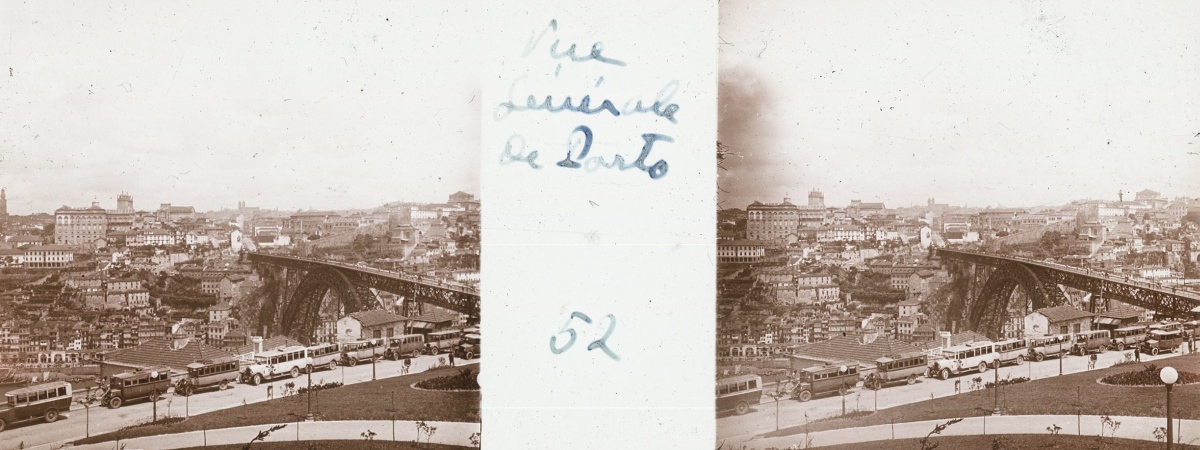 Vue
Générale
De Porto
52